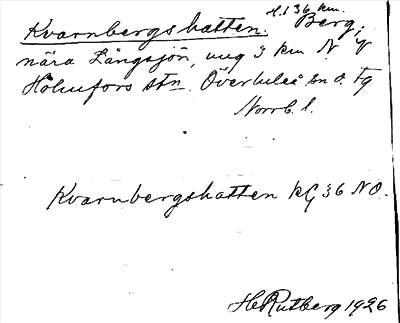 H. i 36 km.
Kvarnbergshatten. Berg,
nära Långsjön, ung 3 km N V
Holmfors stn. Överluleå sn o. tg
Norrb. l.
Kvarnbergshatten kG 36 NO.
H Rutberg 1926